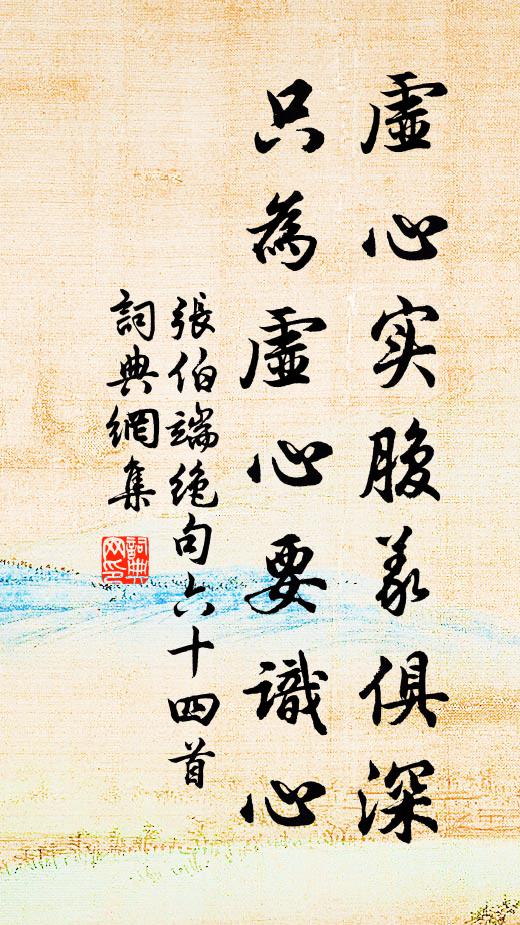 虛心实腹義俱深
只為虛心要識心
張伯端绝句六十四首
詞典網集
詞典网印